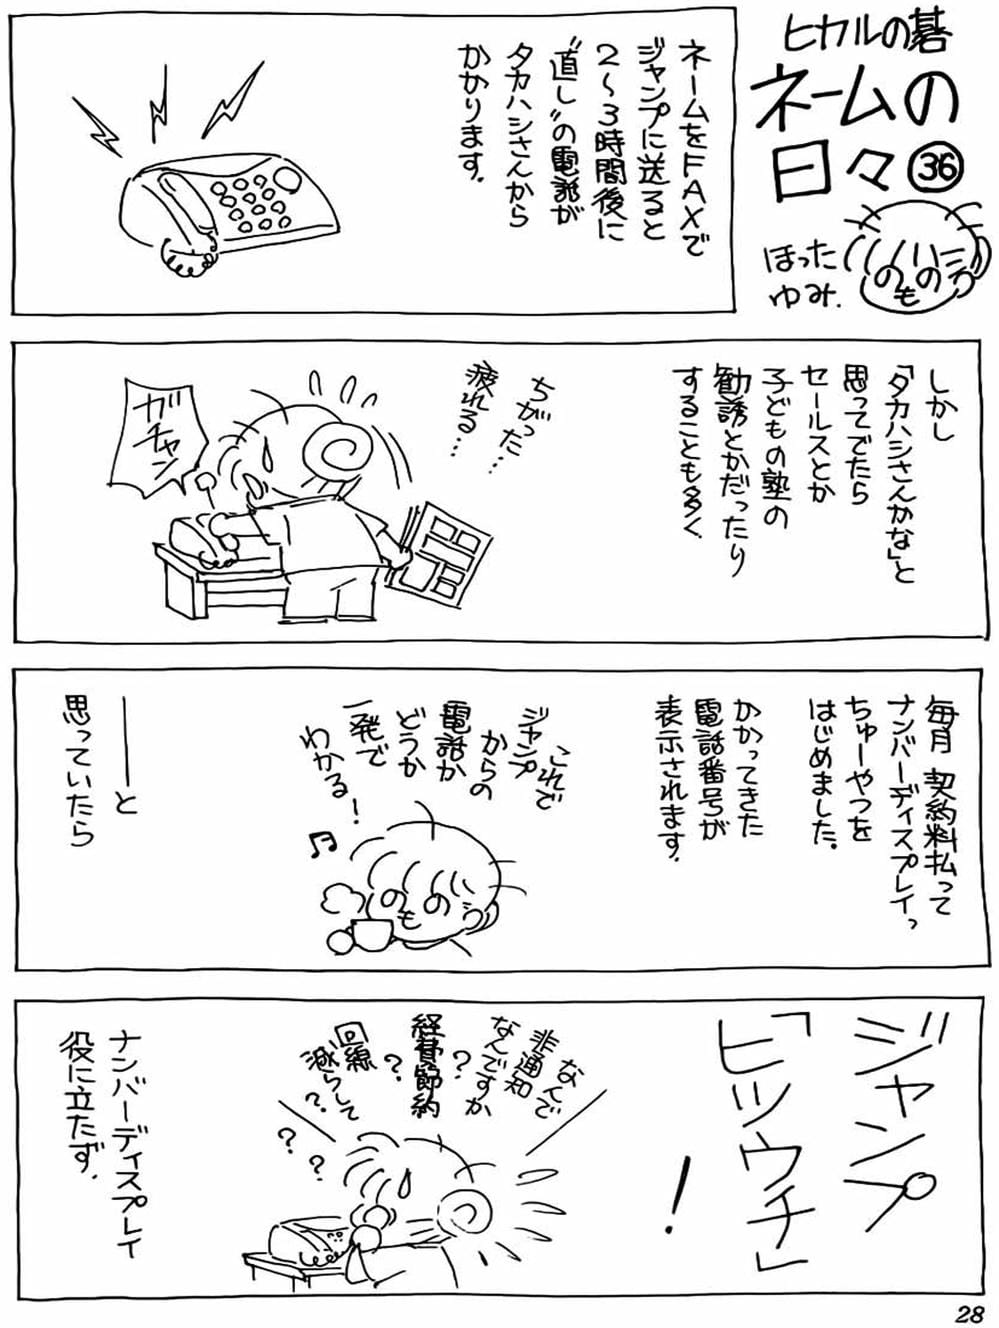 ヒカルの碁
ネームの
日々㊱
ほった
ゆみ.
ネームをFAXで
ジャンプに送ると
2〜3時間後に
"直し"の電話が
タカハシさんから
かかります.
しかし
「タカハシさんかな」と
思ってでたら
セールスとか
子どもの塾の
勧誘とかだったり
することも多く
ちがった…
疲れる…
ガチャン
毎月 契約料払って
ナンバーディスプレイっ
ちゅーやつを
はじめました.
かかってきた
電話番号が
表示されます.
これで
ジャンプ
からの
電話か
どうか
一発で
わかる!
――と
思っていたら
ジャンプ
「ヒツウチ」
!
なんで
非通知
なんですか
?
経費節約
?
回線
減らして
?
?
?
ナンバーディスプレイ
役に立たず.
28